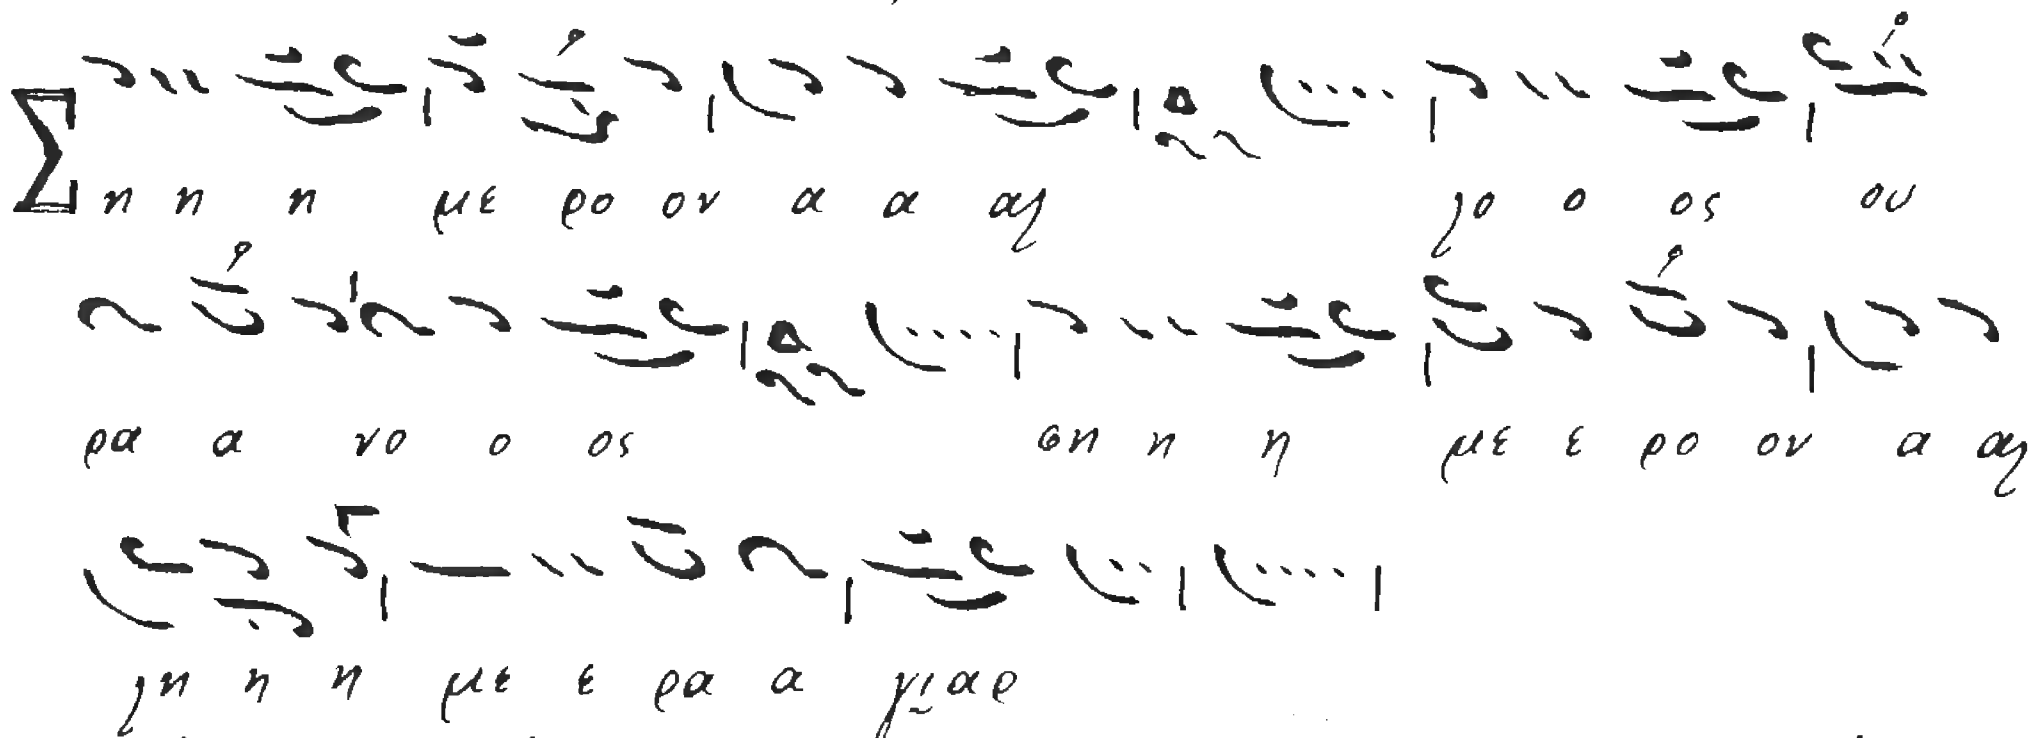 Σ η η η με ρο ον α α αλ λο ο ος ου
ρα α νο ο ος ση η η με ε ρο ον α αλ
λη η η με ε ρα α γι αρ